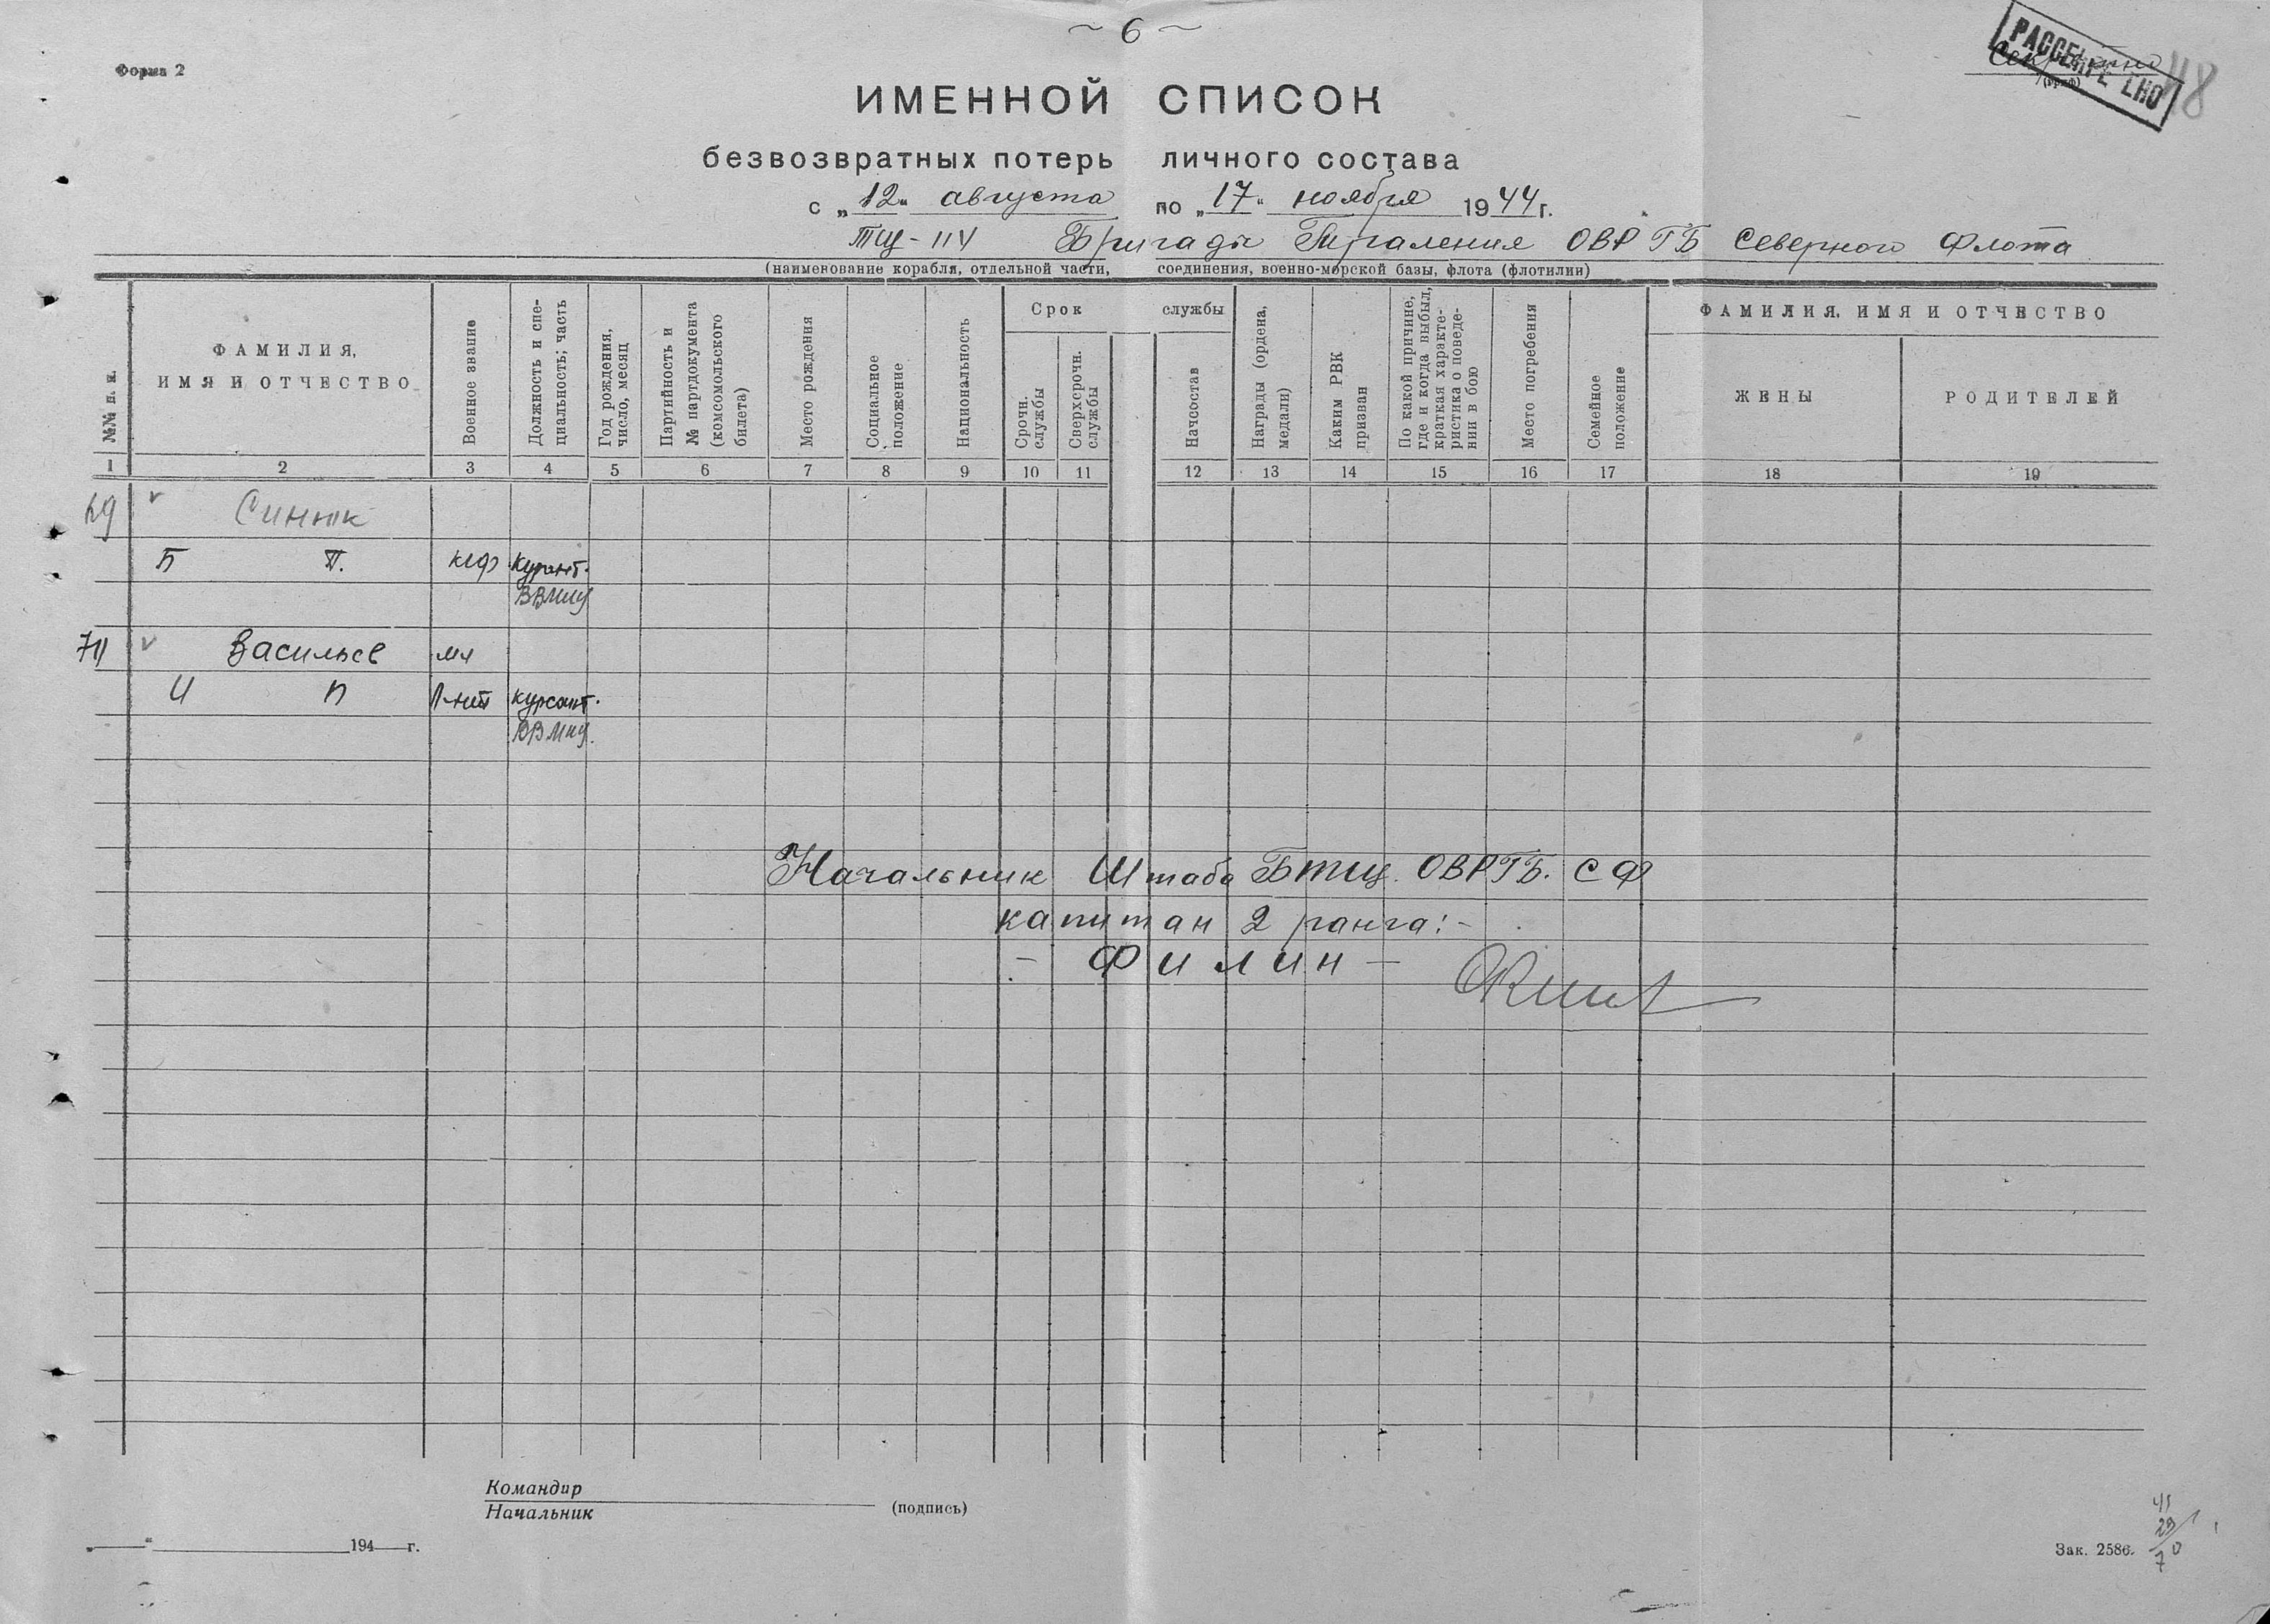 ~ 6 ~
Форма 2
РАССЕКРЕЧЕНО
48
ИМЕННОЙ СПИСОК
безвозвратных потерь личного состава
с „12“ августа по „17“ ноября 1944 г.
ТЩ-114 Бригады Траления ОВР ГБ Северного Флота
(наименование корабля, отдельной части, соединения, военно-морской базы, флота (флотилии)
№№ п. п.
ФАМИЛИЯ, ИМЯ И ОТЧЕСТВО
Военное звание
Должность и специальность; часть
Год рождения, число, месяц
Партийность и № партдокумента (комсомольского билета)
Место рождения
Социальное положение
Национальность
Срок службы
Срочн. службы
Сверхсрочн. службы
Начсостав
Награды (ордена, медали)
Каким РВК призван
По какой причине, где и когда выбыл, краткая характеристика о поведении в бою
Место погребения
Семейное положение
ФАМИЛИЯ, ИМЯ И ОТЧЕСТВО
ЖЕНЫ
РОДИТЕЛЕЙ
1 2 3 4 5 6 7 8 9 10 11 12 13 14 15 16 17 18 19
69 v Синюк
Б П. кмф курсант.
ВВМИУ
70 v Васильев мл
И П Л-нт курсант.
ВВМИУ.
Начальник Штаба БТЩ ОВРГБ. СФ
капитан 2 ранга:-
- Филин -
Командир
Начальник
(подпись)
„ “ 194 г.
Зак. 2586.
41
29
70